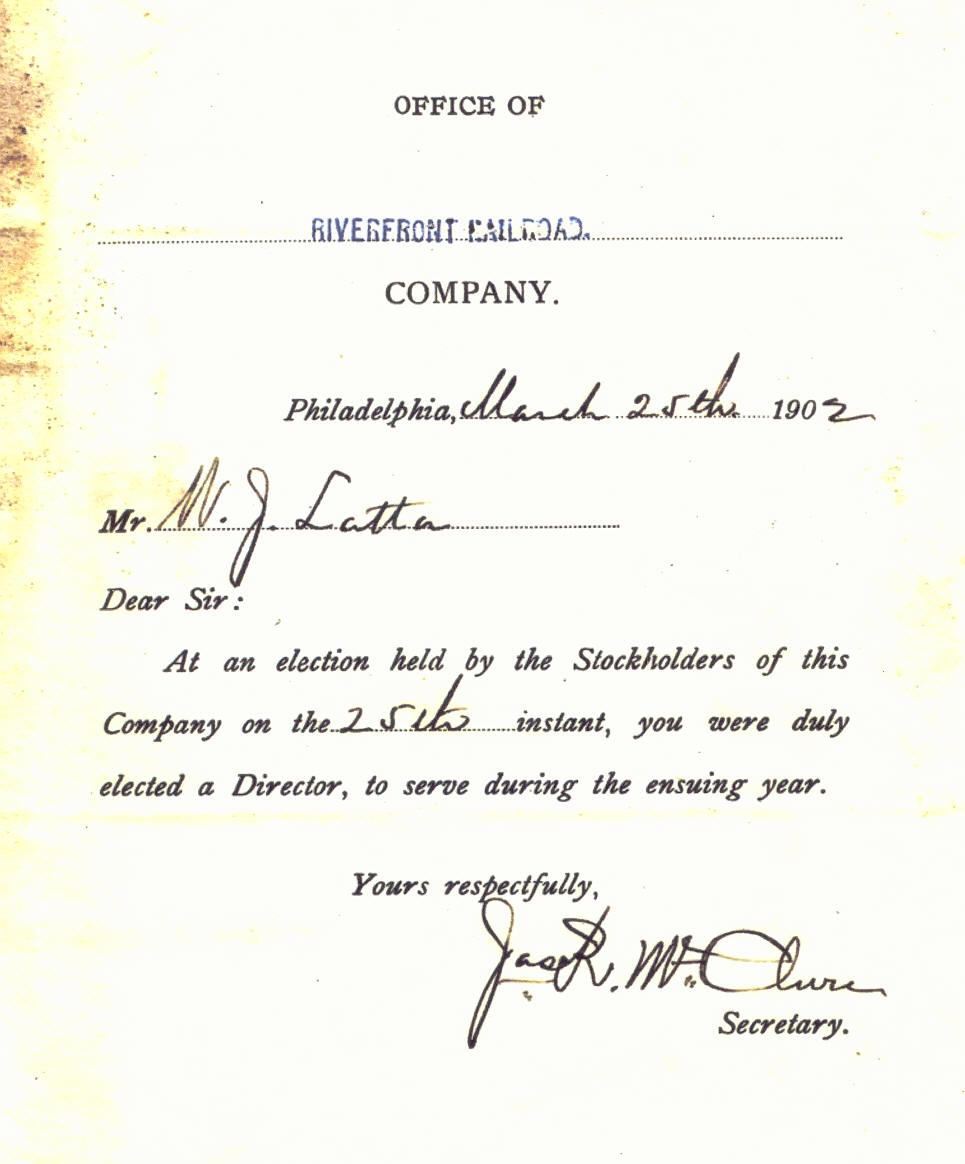 OFFICE OF
RIVERFRONT RAILROAD.
COMPANY.
Philadelphia, March 25th 1902
Mr. W. J. Latta
Dear Sir:
At an election held by the Stockholders of this
Company on the 25th instant, you were duly
elected a Director, to serve during the ensuing year.
Yours respectfully,
Jas R. McClure
Secretary.